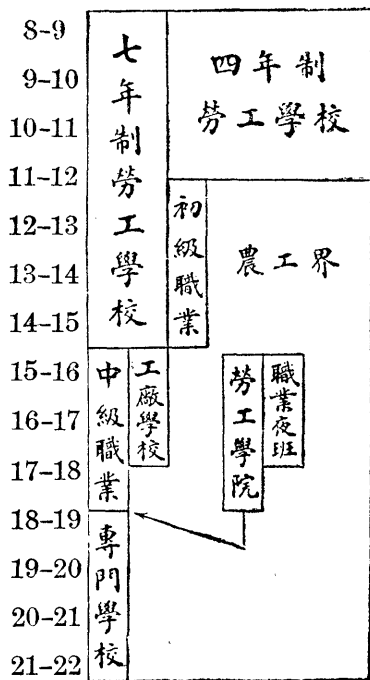 8-9
9-10
10-11
11-12
12-13
13-14
14-15
15-16
16-17
17-18
18-19
19-20
20-21
21-22
七年制勞工學校
四年制
勞工學校
初級職業
農工界
中級職業
工廠學校
勞工學院
職業夜班
專門學校